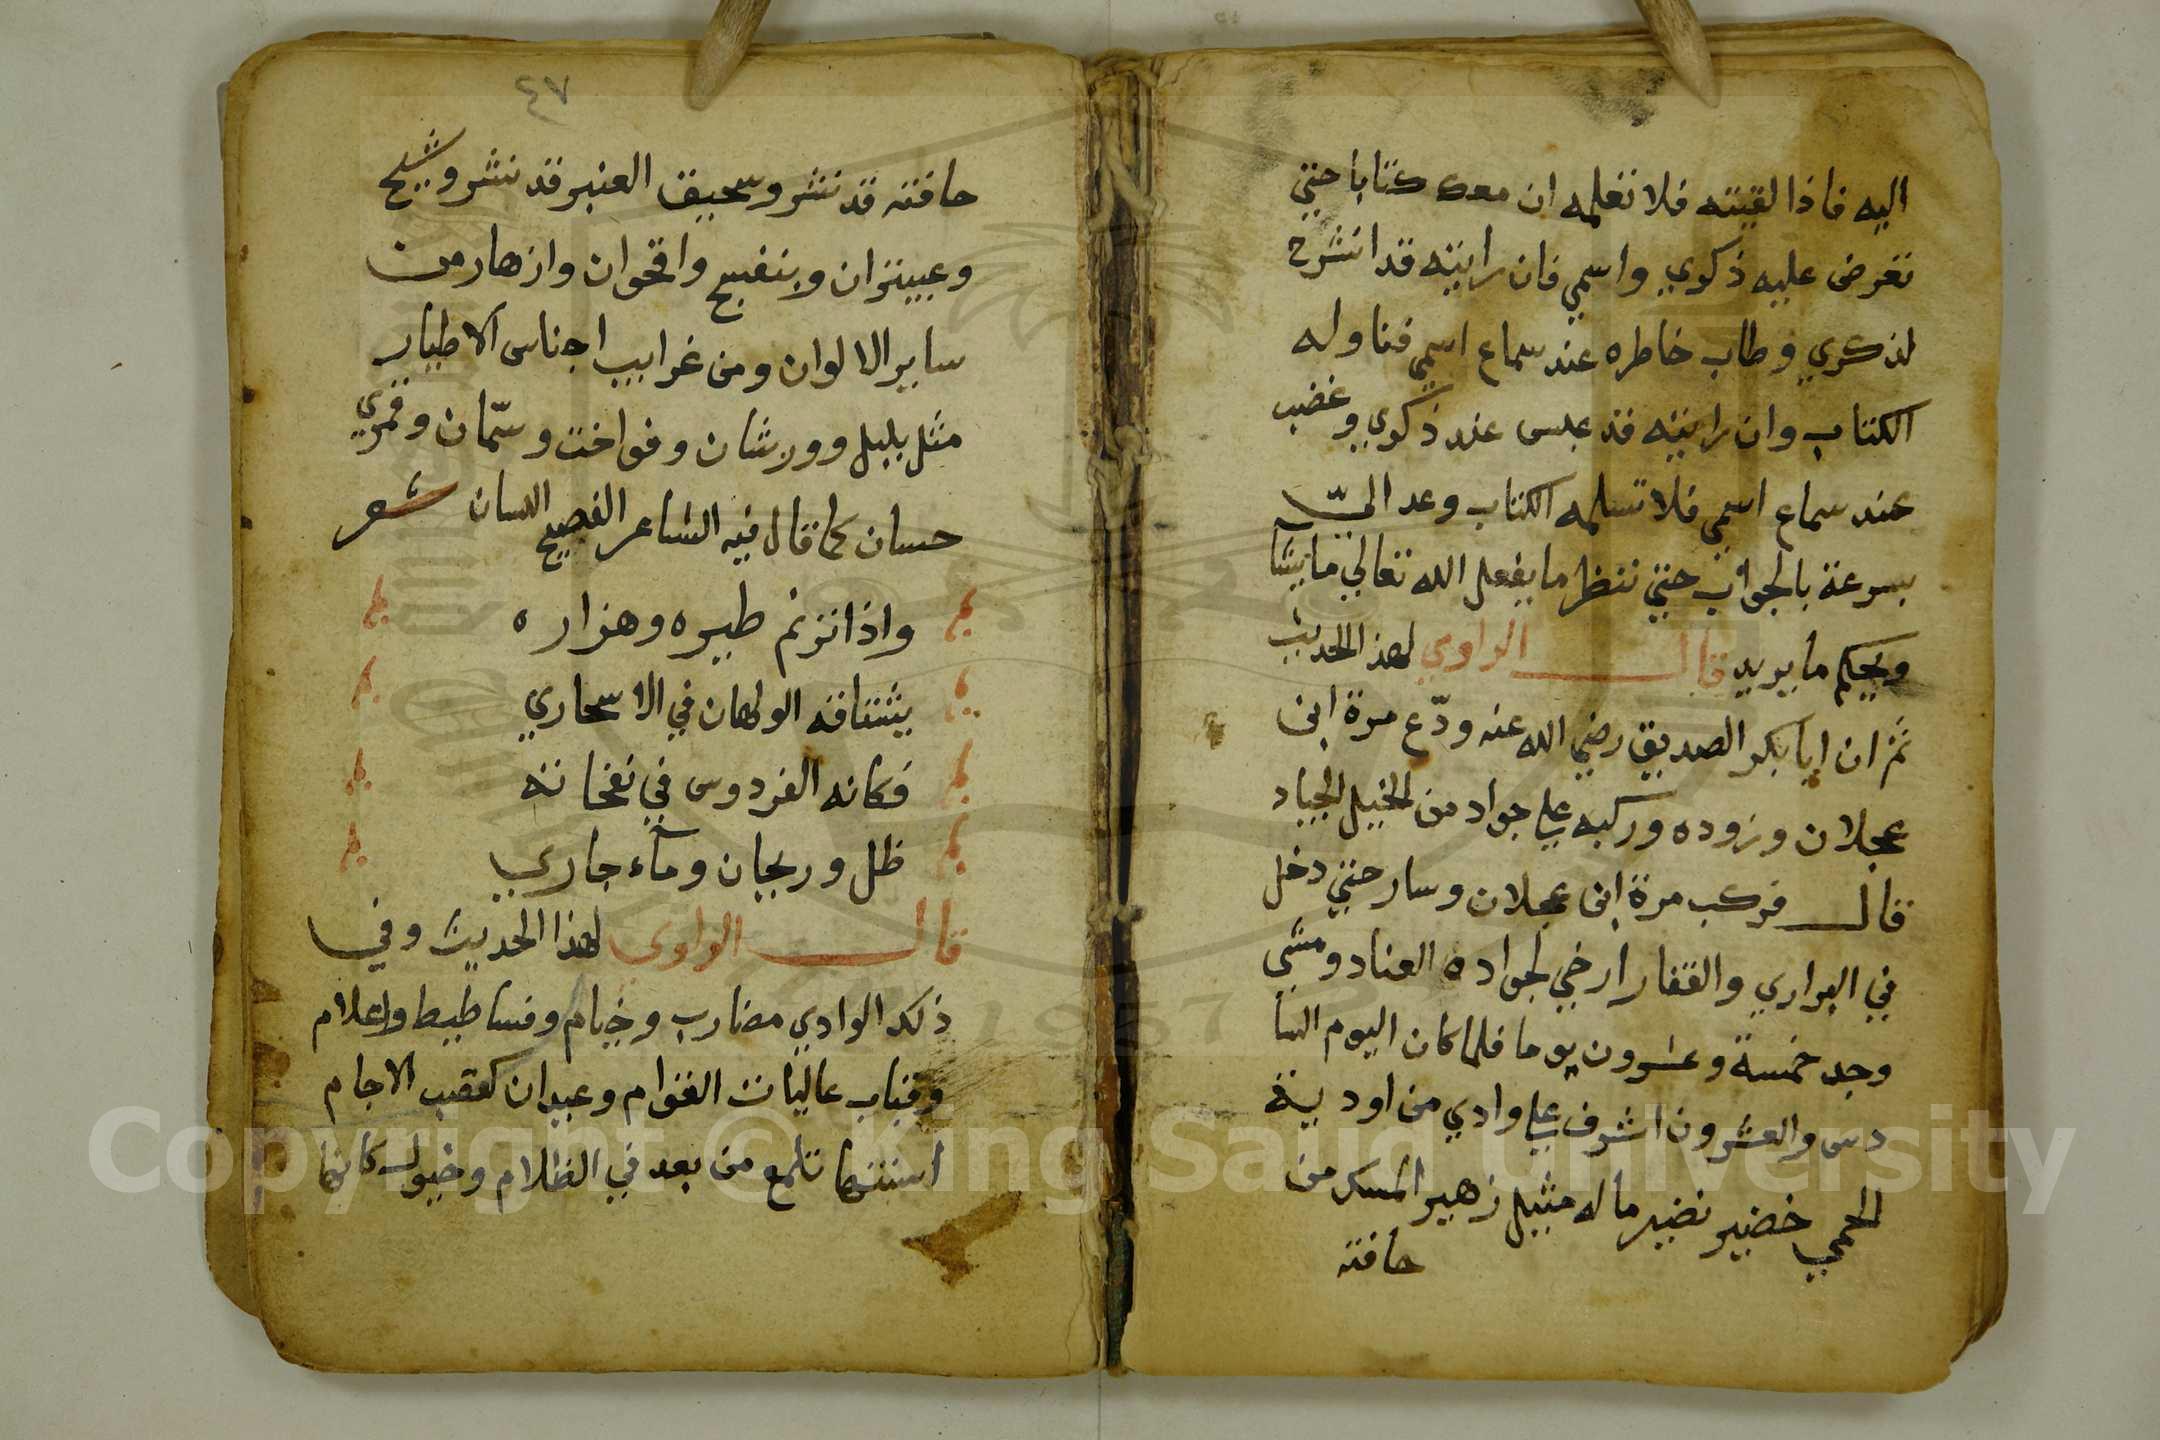 اليه فاذا لقيته فلا تعلمه ان معك كتابا حتي
تعرض عليه ذكري واسمي فان رايته قد انشرح
لذكري وطاب خاطره عند سماع اسمي فناوله
الكتاب وان رايته قد عبس عند ذكري وغضب
عند سماع اسمي فلا تسلمه الكتاب وعد اليّ
بسرعة بالجواب حتي ننظر ما يفعل الله تعالي ما يشآ
ويحكم ما يريد قال الراوي لهذا الحديث
ثم ان ابا بكر الصديق رضي الله عنه ودّع مرة ابن
عجلان وزوده وركبه علي جواد من الخيل الجياد
قال فركب مرة ابن عجلان وسار حتي دخل
في البراري والقفار ارخي لجواده العناد ومشي
وجد خمسة وعشرون يوما فلما كان اليوم السا
دس والعشرون اشرف علي وادي من اودية
الحمي خضير نضير ما له مثيل زهير المسكر من
حافته
٤٧
حافته قد نشر وسحيق العنبر قد نشر وشيح
وعبيتران وبنفسج واقحوان وازهار من
ساير الالوان ومن غرايب اجناس الاطيار
مثل بلبل وورشان وفواخت وسمّان وقمري
حسان كما قال فيه الشاعر الفصيح اللسان شعر
واذا ترنم طيره وهزاره
يشتاقه الولهان في الاسحاري
فكانه الفردوس في نفحاته
ظل وريحان ومآء جاري
قال الراوي لهذا الحديث وفي
ذلك الوادي مضارب وخيام وفساطيط واعلام
وقباب عاليات القوام وعيدان كقصب الاجام
اسنتها تلمع من بعد في الظلام وخيول كانها
Copyright © King Saud University
1957